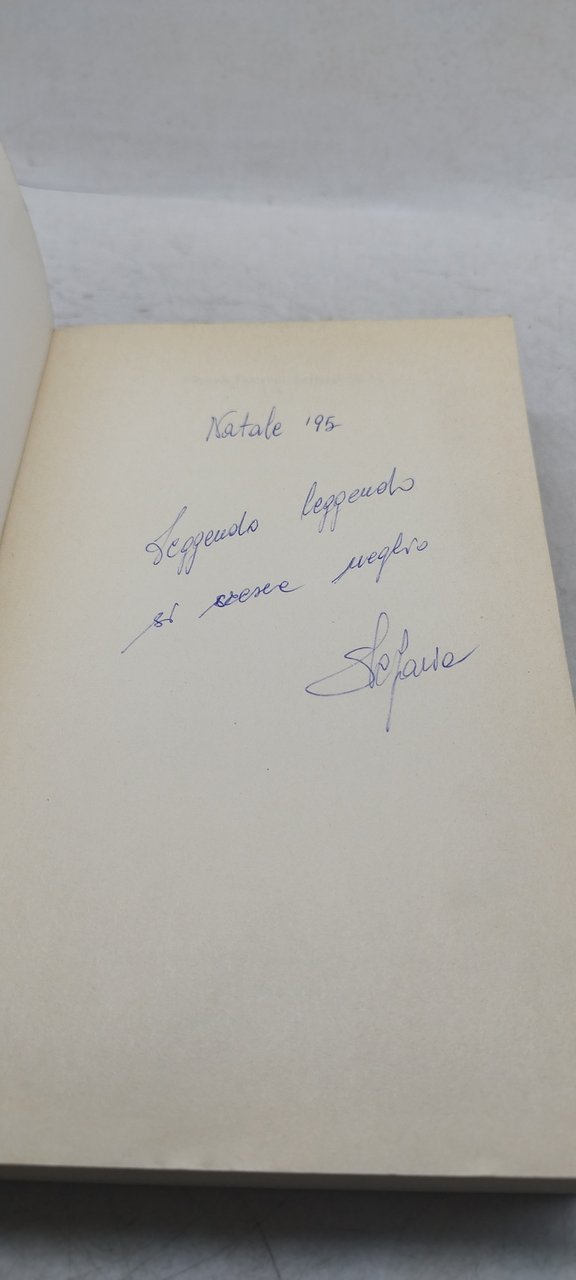 Natale '95
Leggendo leggendo
si cresce meglio
Stefania